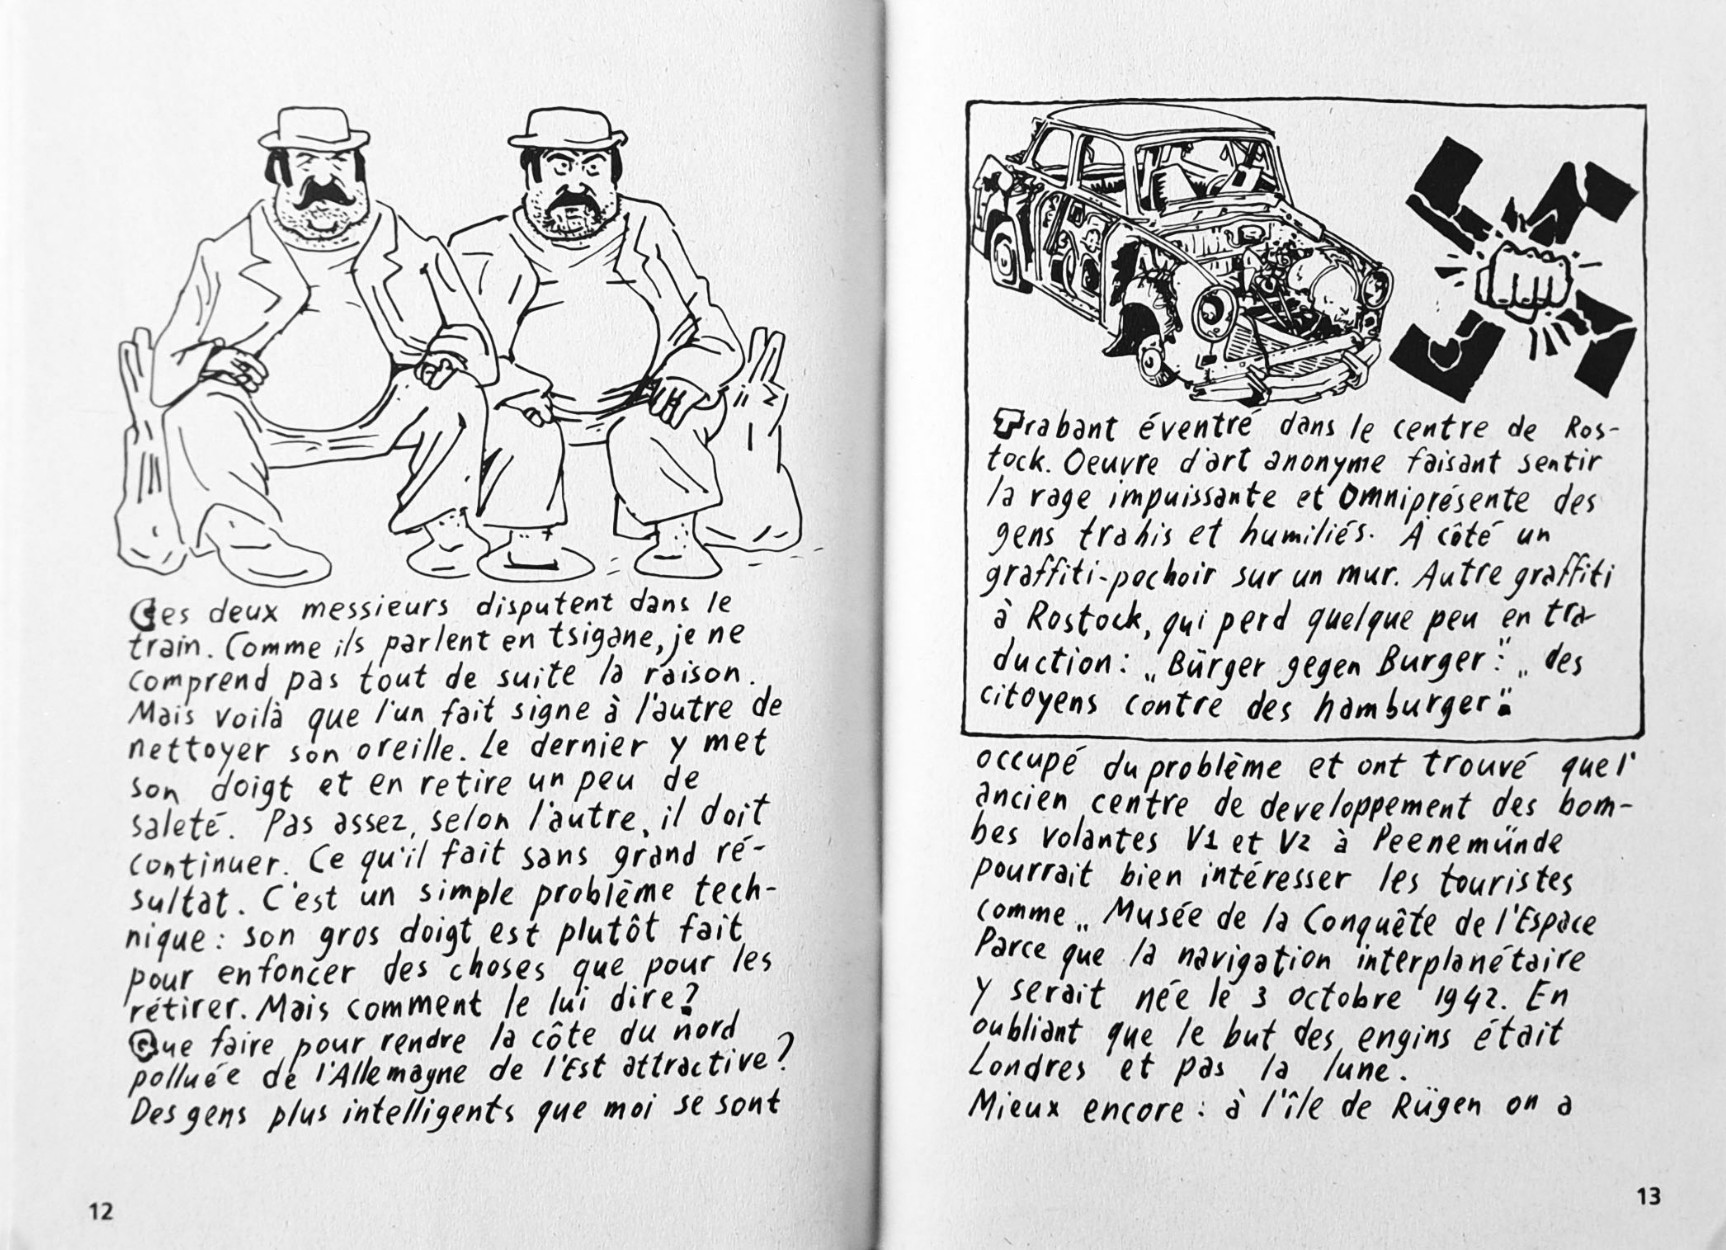 Ces deux messieurs disputent dans le
train. Comme ils parlent en tsigane, je ne
comprend pas tout de suite la raison.
Mais voilà que l'un fait signe à l'autre de
nettoyer son oreille. Le dernier y met
son doigt et en retire un peu de
saleté. Pas assez, selon l'autre, il doit
continuer. Ce qu'il fait sans grand ré-
sultat. C'est un simple problème tech-
nique: son gros doigt est plutôt fait
pour enfoncer des choses que pour les
rétirer. Mais comment le lui dire?
Que faire pour rendre la côte du nord
polluée de l'Allemagne de l'Est attractive?
Des gens plus intelligents que moi se sont
12
Trabant éventré dans le centre de Ros-
tock. Oeuvre d'art anonyme faisant sentir
la rage impuissante et Omniprésente des
gens trahis et humiliés. À côté un
graffiti-pochoir sur un mur. Autre graffiti
à Rostock, qui perd quelque peu en tra-
duction: „Bürger gegen Burger": „des
citoyens contre des hamburger".
occupé du problème et ont trouvé que l'
ancien centre de developpement des bom-
bes volantes V1 et V2 à Peenemünde
pourrait bien intéresser les touristes
comme „Musée de la Conquête de l'Espace
Parce que la navigation interplanétaire
y serait née le 3 octobre 1942. En
oubliant que le but des engins était
Londres et pas la lune.
Mieux encore: à l'île de Rügen on a
13